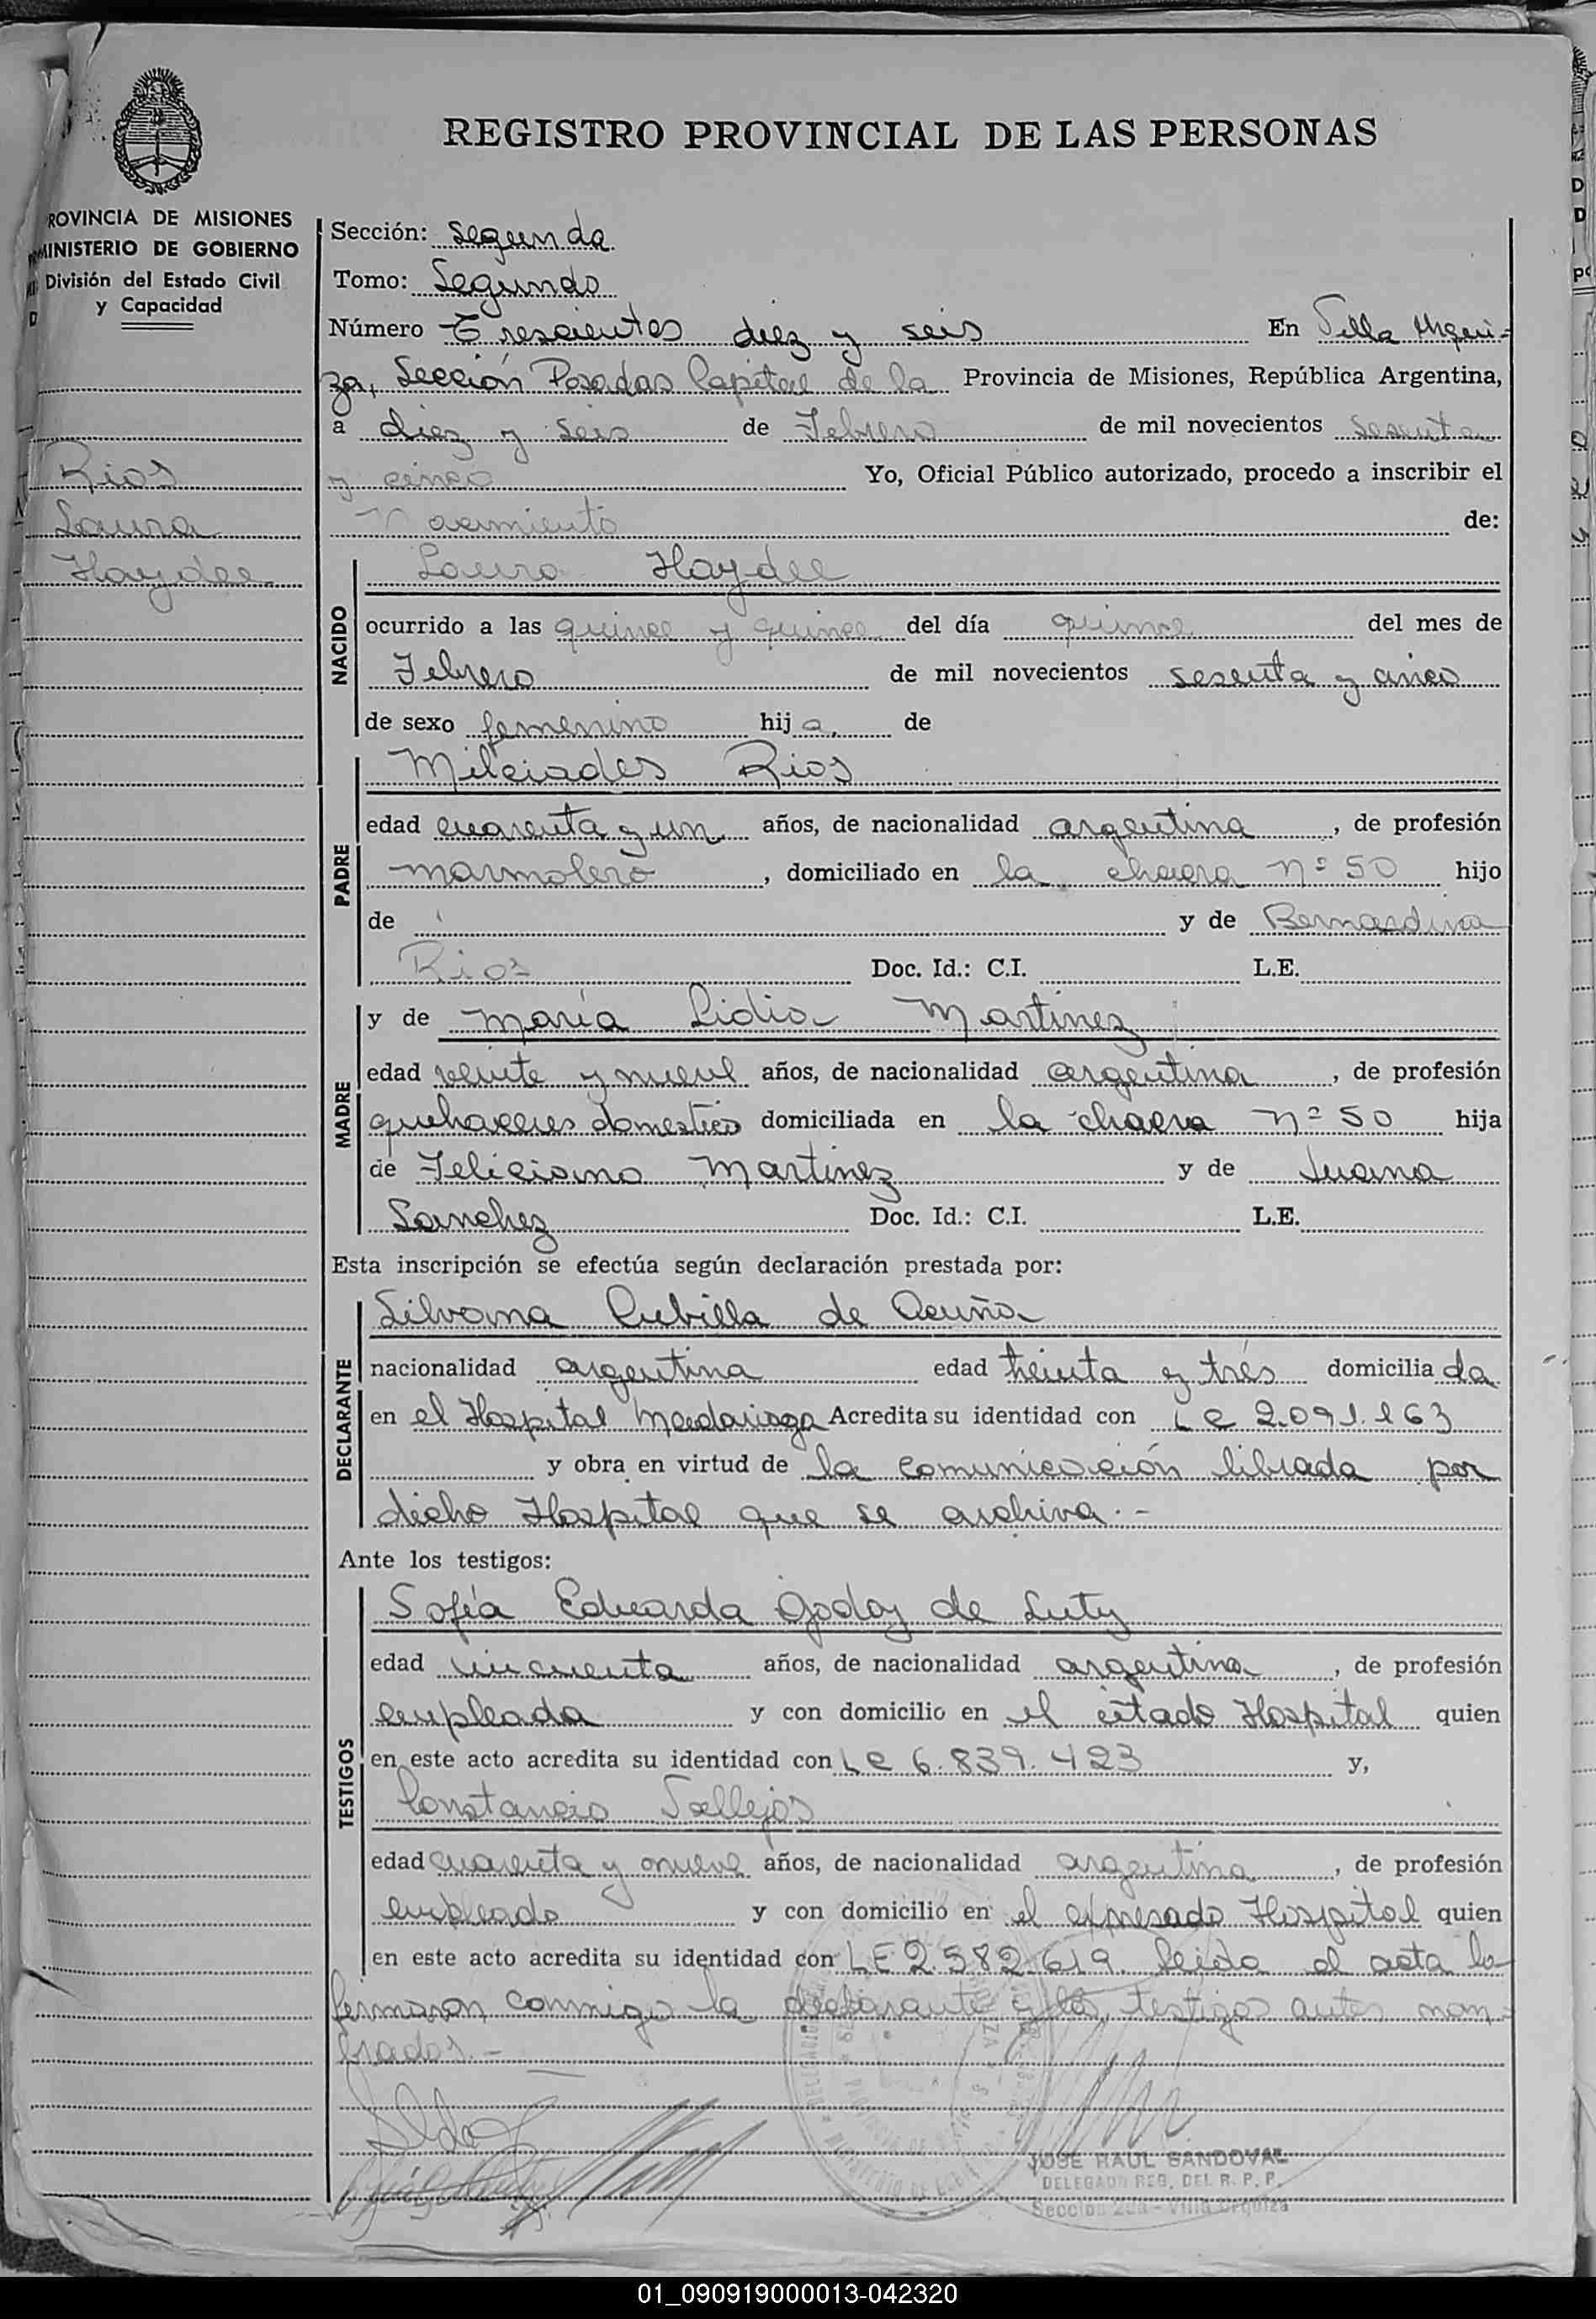 REGISTRO PROVINCIAL DE LAS PERSONAS
ROVINCIA DE MISIONES
MINISTERIO DE GOBIERNO
División del Estado Civil
y Capacidad
Rios
Laura
Haydee
Sección: Segunda
Tomo: Segundo
Número Trescientos diez y seis En Villa Urqui-
za, Sección Posadas Capital de la Provincia de Misiones, República Argentina,
a diez y seis de Febrero de mil novecientos sesenta
y cinco Yo, Oficial Público autorizado, procedo a inscribir el
Nacimiento de:
NACIDO
Laura Haydee
ocurrido a las quince y quince del día quince del mes de
Febrero de mil novecientos sesenta y cinco
de sexo femenino hija de
PADRE
Milciades Rios
edad cuarenta y un años, de nacionalidad argentina, de profesión
marmolero, domiciliado en la chacra nº 50 hijo
de y de Bernardina
Rios Doc. Id.: C.I. L.E.
MADRE
y de María Lidia Martinez
edad veinte y nueve años, de nacionalidad argentina, de profesión
quehaceres domestico domiciliada en la chacra nº 50 hija
de Feliciano Martinez y de Juana
Sanchez Doc. Id.: C.I. L.E.
Esta inscripción se efectúa según declaración prestada por:
DECLARANTE
Silvana Cubilla de Acuña
nacionalidad argentina edad treinta y tres domiciliada
en el Hospital Madariaga Acredita su identidad con LC 2.091.163
y obra en virtud de la comunicación librada por
dicho Hospital que se archiva.-
Ante los testigos:
TESTIGOS
Sofía Eduarda Godoy de Luty
edad cincuenta años, de nacionalidad argentina, de profesión
empleada y con domicilio en el citado Hospital quien
en este acto acredita su identidad con LC 6.839.423 y,
Constancio Vallejos
edad cuarenta y nueve años, de nacionalidad argentina, de profesión
empleado y con domicilio en el expresado Hospital quien
en este acto acredita su identidad con LE 2.582.619. Leida el acta la
firmaron conmigo la declarante y los testigos antes nom-
brados.-
JOSE RAUL SANDOVAL
DELEGADO REG. DEL R. P. P.
Sección 2da - Villa Urquiza
01_090919000013-042320